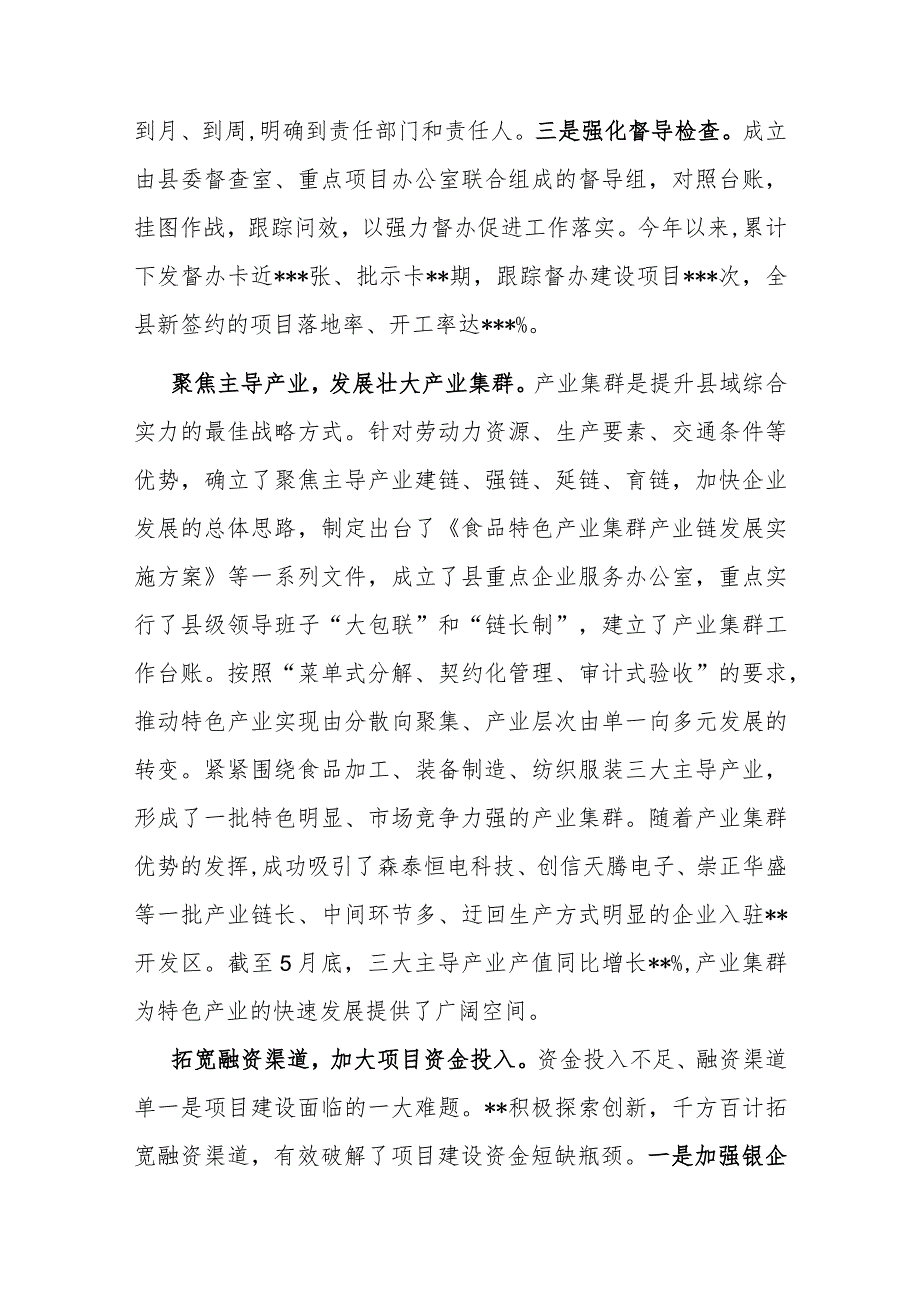 到月、到周,明确到责任部门和责任人。三是强化督导检查。成立
由县委督查室、重点项目办公室联合组成的督导组，对照台账，
挂图作战，跟踪问效，以强力督办促进工作落实。今年以来,累计
下发督办卡近***张、批示卡**期，跟踪督办建设项目***次，全
县新签约的项目落地率、开工率达***%。
聚焦主导产业，发展壮大产业集群。产业集群是提升县域综合
实力的最佳战略方式。针对劳动力资源、生产要素、交通条件等
优势，确立了聚焦主导产业建链、强链、延链、育链，加快企业
发展的总体思路，制定出台了《食品特色产业集群产业链发展实
施方案》等一系列文件，成立了县重点企业服务办公室，重点实
行了县级领导班子“大包联”和“链长制”，建立了产业集群工
作台账。按照“菜单式分解、契约化管理、审计式验收”的要求，
推动特色产业实现由分散向聚集、产业层次由单一向多元发展的
转变。紧紧围绕食品加工、装备制造、纺织服装三大主导产业，
形成了一批特色明显、市场竞争力强的产业集群。随着产业集群
优势的发挥,成功吸引了森泰恒电科技、创信天腾电子、崇正华盛
等一批产业链长、中间环节多、迂回生产方式明显的企业入驻**
开发区。截至5月底，三大主导产业产值同比增长**%,产业集群
为特色产业的快速发展提供了广阔空间。
拓宽融资渠道，加大项目资金投入。资金投入不足、融资渠道
单一是项目建设面临的一大难题。**积极探索创新，千方百计拓
宽融资渠道，有效破解了项目建设资金短缺瓶颈。一是加强银企